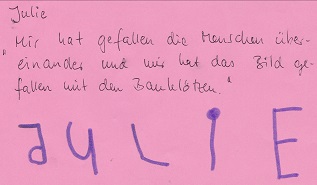 Julie
"Mir hat gefallen die Menschen über-
einander und mir hat das Bild ge-
fallen mit den Bauklötzen."
JULIE